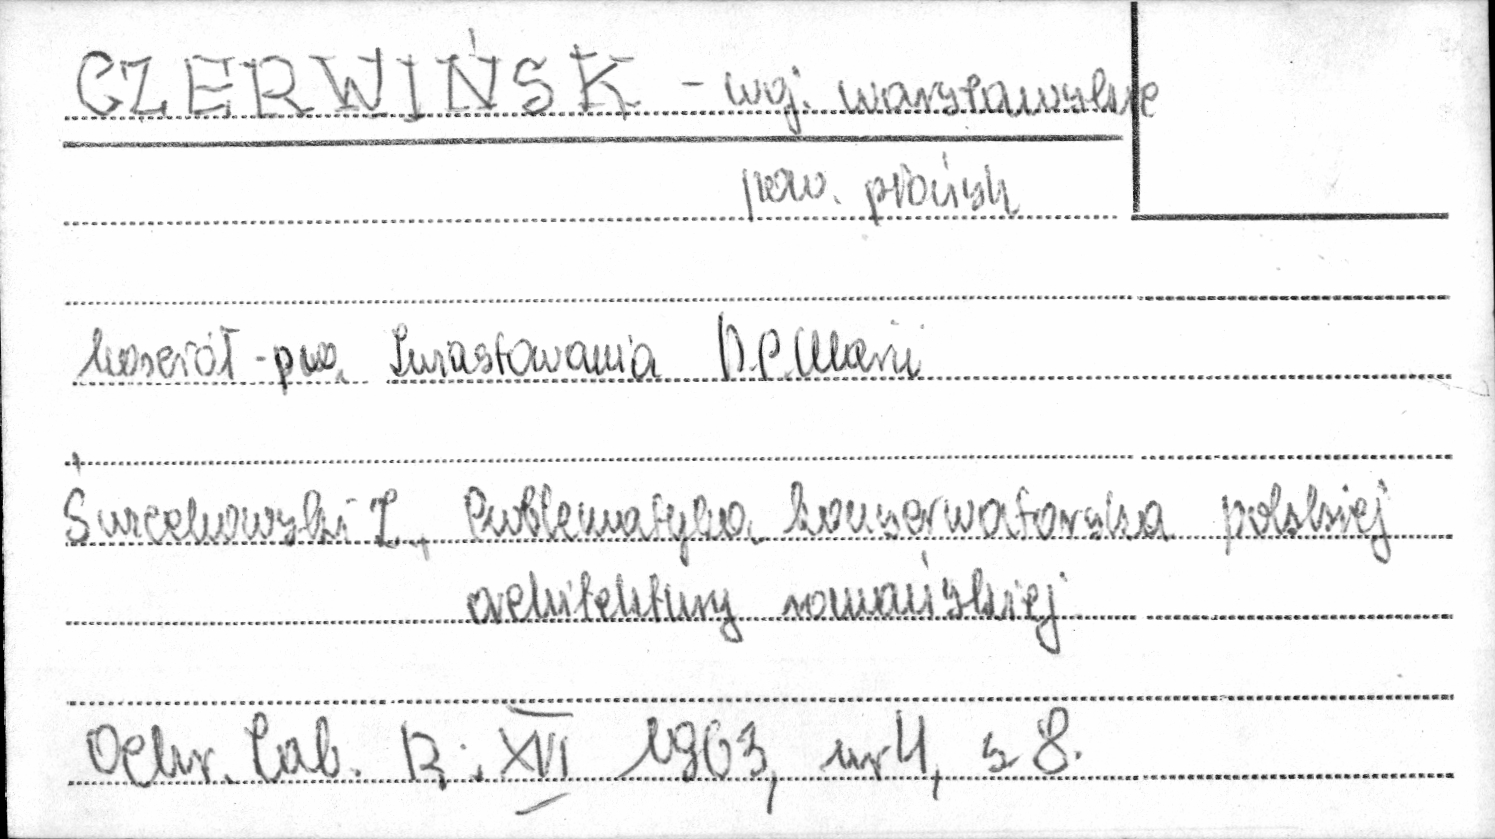 CZERWIŃSK - woj. warszawskie
pow. płońsk
kościół - pw. Zwiastowania N.P.Marii
Świechowski Z., Problematyka konserwatorska polskiej
architektury romańskiej
Ochr. Zab. R: XVI 1963, nr 4, s 8.